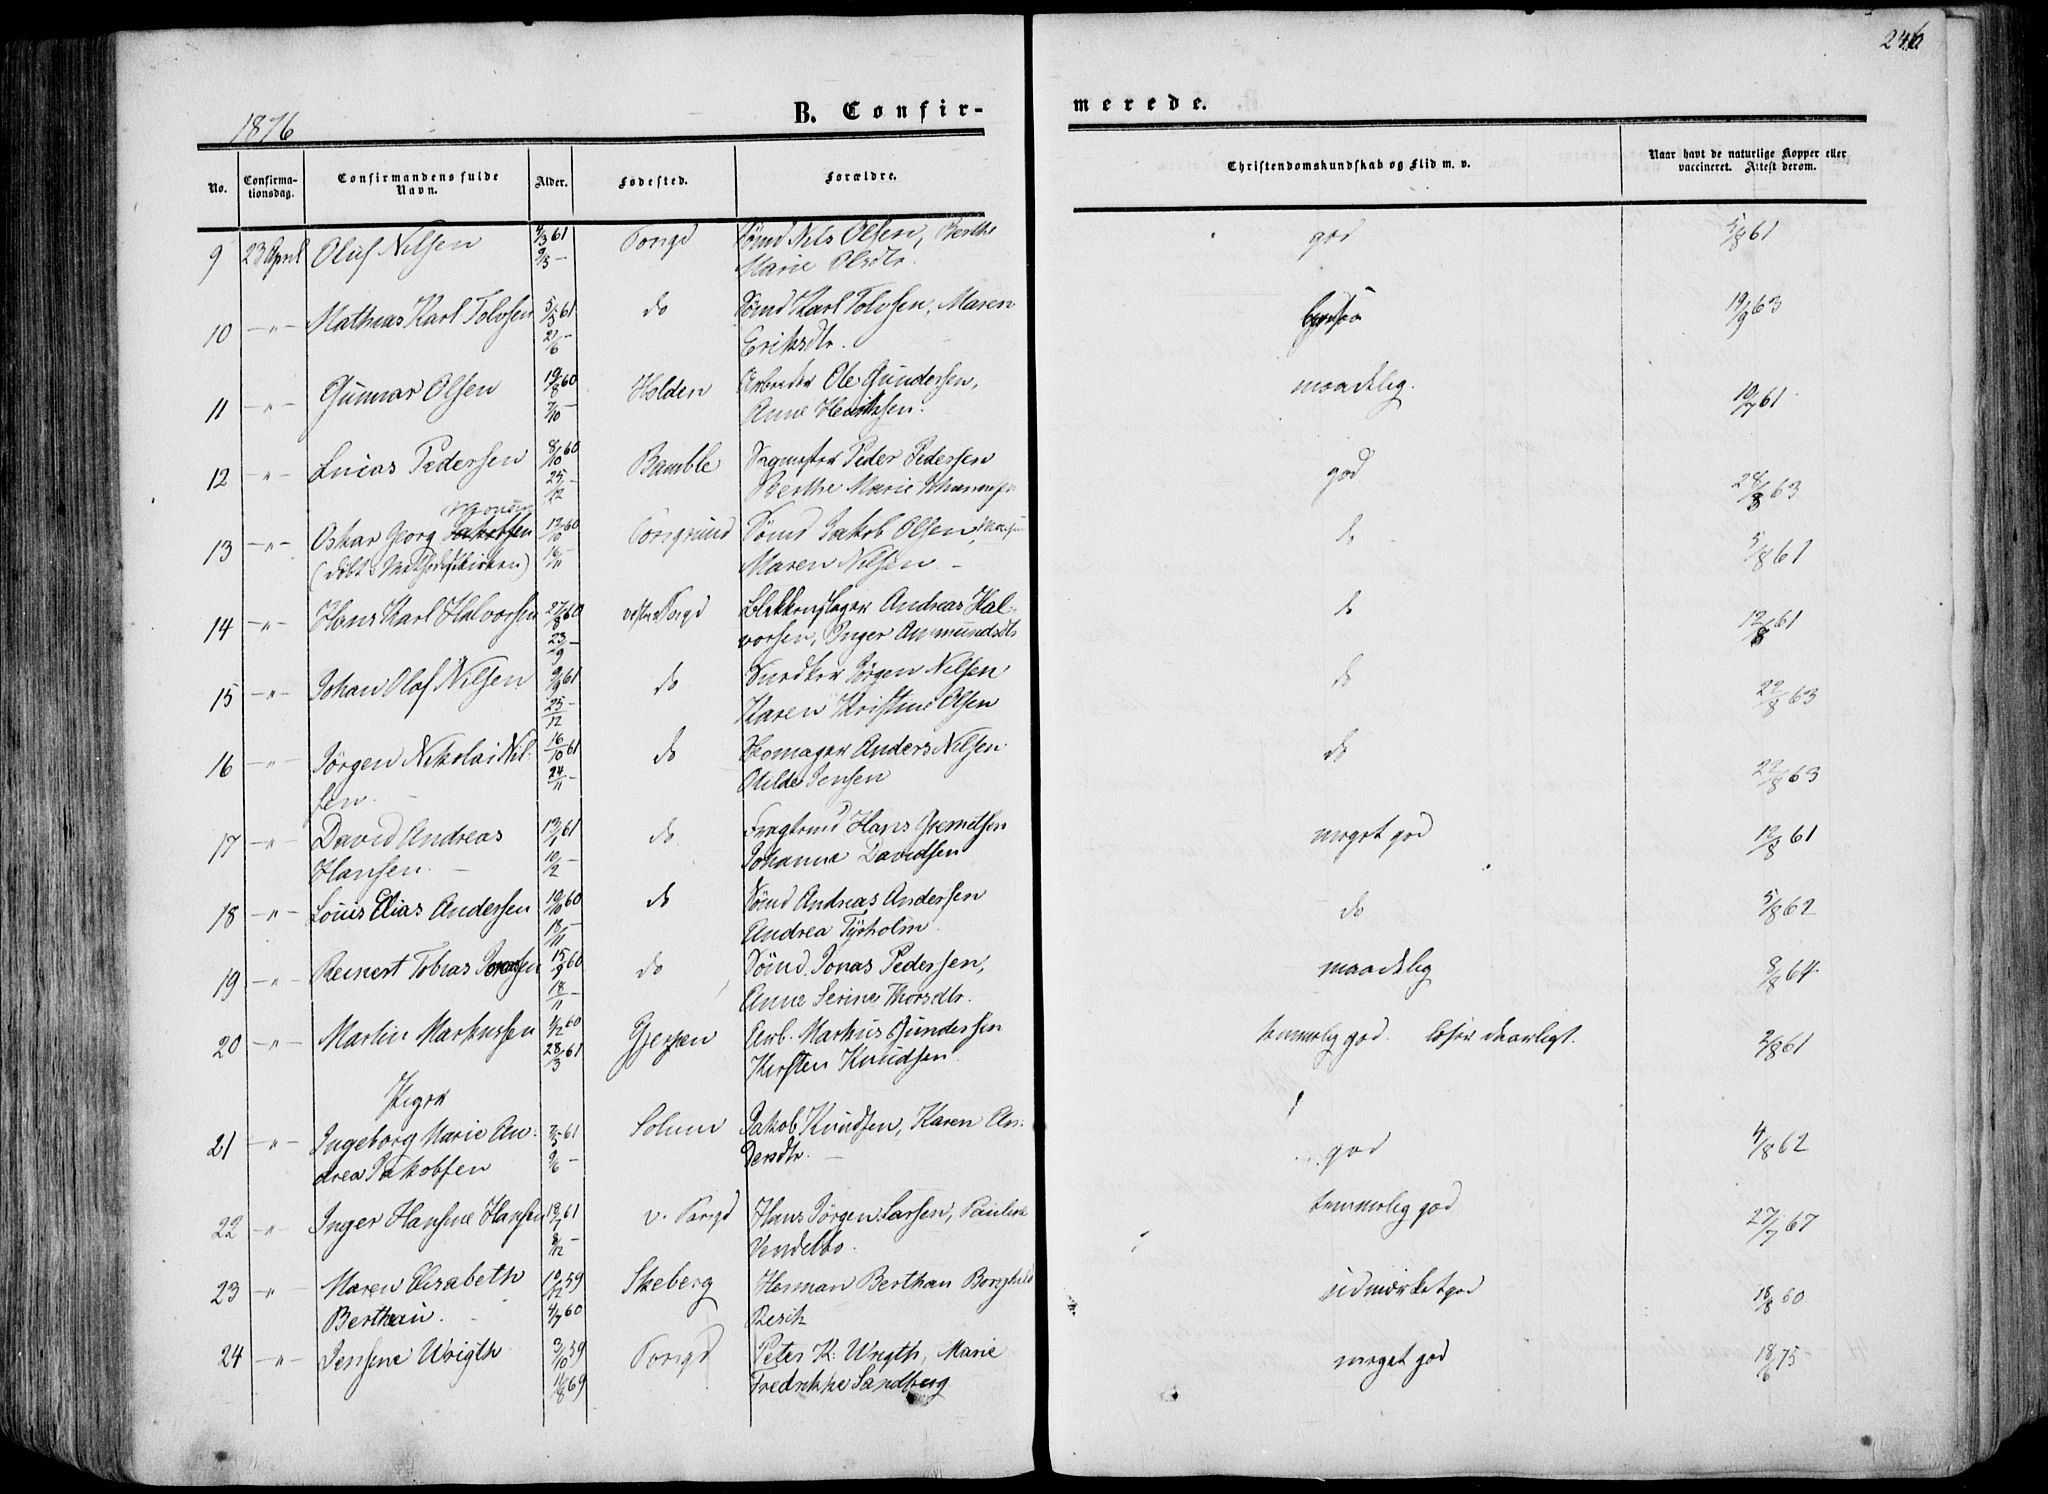 246
1876
B. Confir-
merede.
No.
Confirma-
tionsdag.
Confirmandens fulde
Navn.
Alder.
Fødested.
Forældre.
Christendomskundskab og Flid m. v.
Naar havt de naturlige Kopper eller
vaccineret. Attest derom.
9 23 April Oluf Nilsen 4/3 61 Porsgd Sømd Nils Olsen, Berthe god 5/8 61
9/5 - Marie Olsdtr.
10 -"- Mathias Karl Tolvsen 5/5 61 do Sømd Karl Tolvsen, Maren 19/9 63
2/6 - Eriksdtr.
11 -"- Gunnar Olsen 19/8 60 Holden Arbeider Ole Gundersen, maadelig. 10/7 61
7/10 - Anne Henriksen.
12 -"- Lucas Pedersen 8/10 60 Bamble Sagmester Peder Pedersen god 28/8 63
25/12 - Berthe Marie Johannesen
13 -"- Oskar Georg Jakobsen 12/10 60 Porsgrund Sømd Jakob Olsen do 5/8 61
(døbt i Methodistkirken) 16/11 - Maren Nilsen -
14 -"- Hans Karl Halvorsen 27/8 60 vestre Porsgd Blikkenslager Andreas Hal- do 12/8 61
23/9 - vorsen, Inger Anmundsdtr
15 -"- Johan Olaf Nilsen 9/9 61 do Snedker Jørgen Nilsen do 22/8 63
25/12 - Karen Kristine Olsen
16 -"- Jørgen Nikolai Nil- 16/10 61 do Skomager Anders Nilsen do 22/8 63
sen. 24/11 - Otilde Jensen
17 -"- David Andreas 13/1 61 do Hans Gremetsen meget god 12/8 61
Hansen. 10/2 - Johanne Davidsen
18 -"- Louis Elias Andersen 10/10 60 do Sømd Andreas Andersen do 5/8 62
18/11 - Andrea Tyrholm.
19 -"- Reinert Tobias Jonassen 15/9 60 do Sømd. Jonas Pedersen, maadelig 8/8 64
18/11 - Anne Serine Thorsdtr.
20 -"- Martin Markussen 4/12 60 Gjerpen Arb. Markus Gundersen temmelig god. læser daarligt. 2/8 61
28/3 61 Kirsten Knudsen.
Piger
21 -"- Ingeborg Marie An- 7/5 61 Solum Jakob Knudsen, Karen An- god 4/8 62
drea Jakobsen 9/6 - dersdtr.
22 -"- Inger Hansine Hansen 18/7 61 v. Porsgd Hans Jørgen Larsen, Pauline temmelig god 27/7 67
8/12 - Vendelbo.
23 -"- Maren Elisabeth 10/12 59 Skeberg Herman Berthau Borghild udmærket god 18/8 60
Berthau. 4/7 60 Resch
24 -"- Jensine Wrigth 3/10 59 Porsgd Peter K. Wrigth, Marie meget god 18/6 75
1/8 69 Fredrikke Sandberg